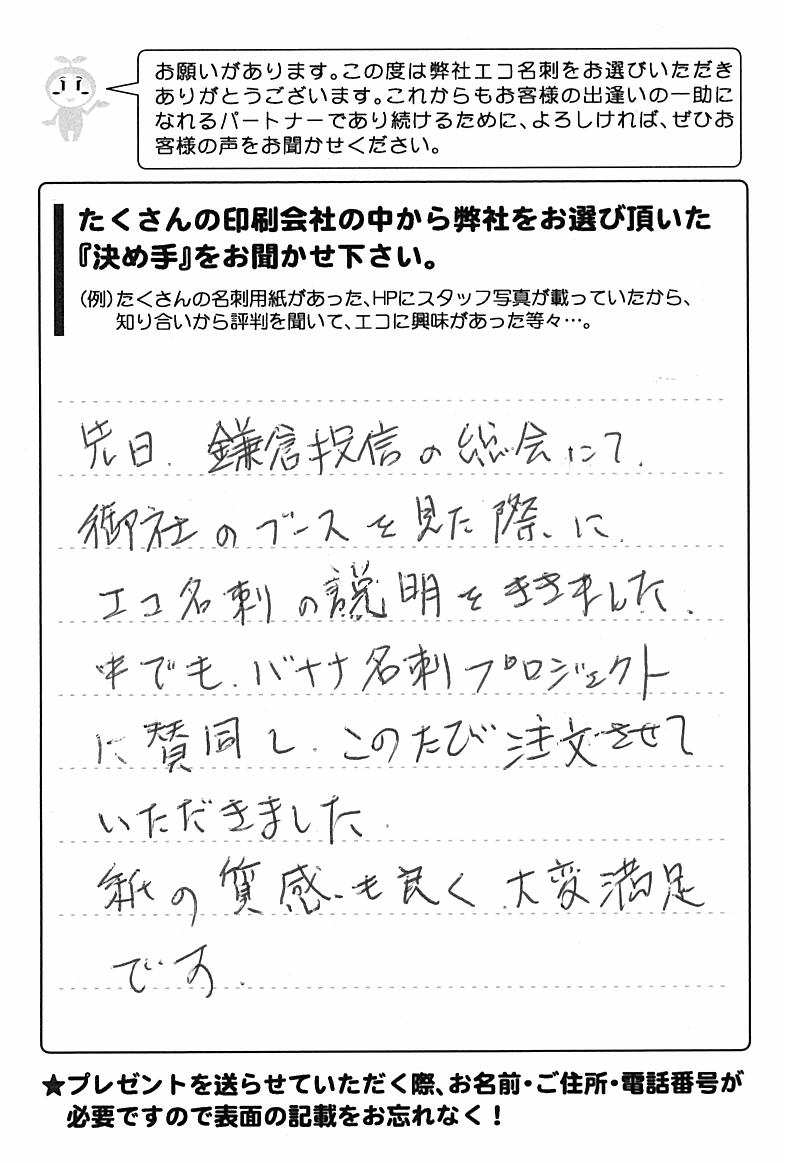 お願いがあります。この度は弊社エコ名刺をお選びいただき
ありがとうございます。これからもお客様の出逢いの一助に
なれるパートナーであり続けるために、よろしければ、ぜひお
客様の声をお聞かせください。
たくさんの印刷会社の中から弊社をお選び頂いた
『決め手』をお聞かせ下さい。
（例）たくさんの名刺用紙があった、HPにスタッフ写真が載っていたから、
知り合いから評判を聞いて、エコに興味があった等々…。
先日、鎌倉投信の総会にて、
御社のブースを見た際に、
エコ名刺の説明をききました。
中でも、バナナ名刺プロジェクト
に賛同し、このたび注文させて
いただきました。
紙の質感も良く、大変満足
です。
★プレゼントを送らせていただく際、お名前・ご住所・電話番号が
必要ですので表面の記載をお忘れなく！